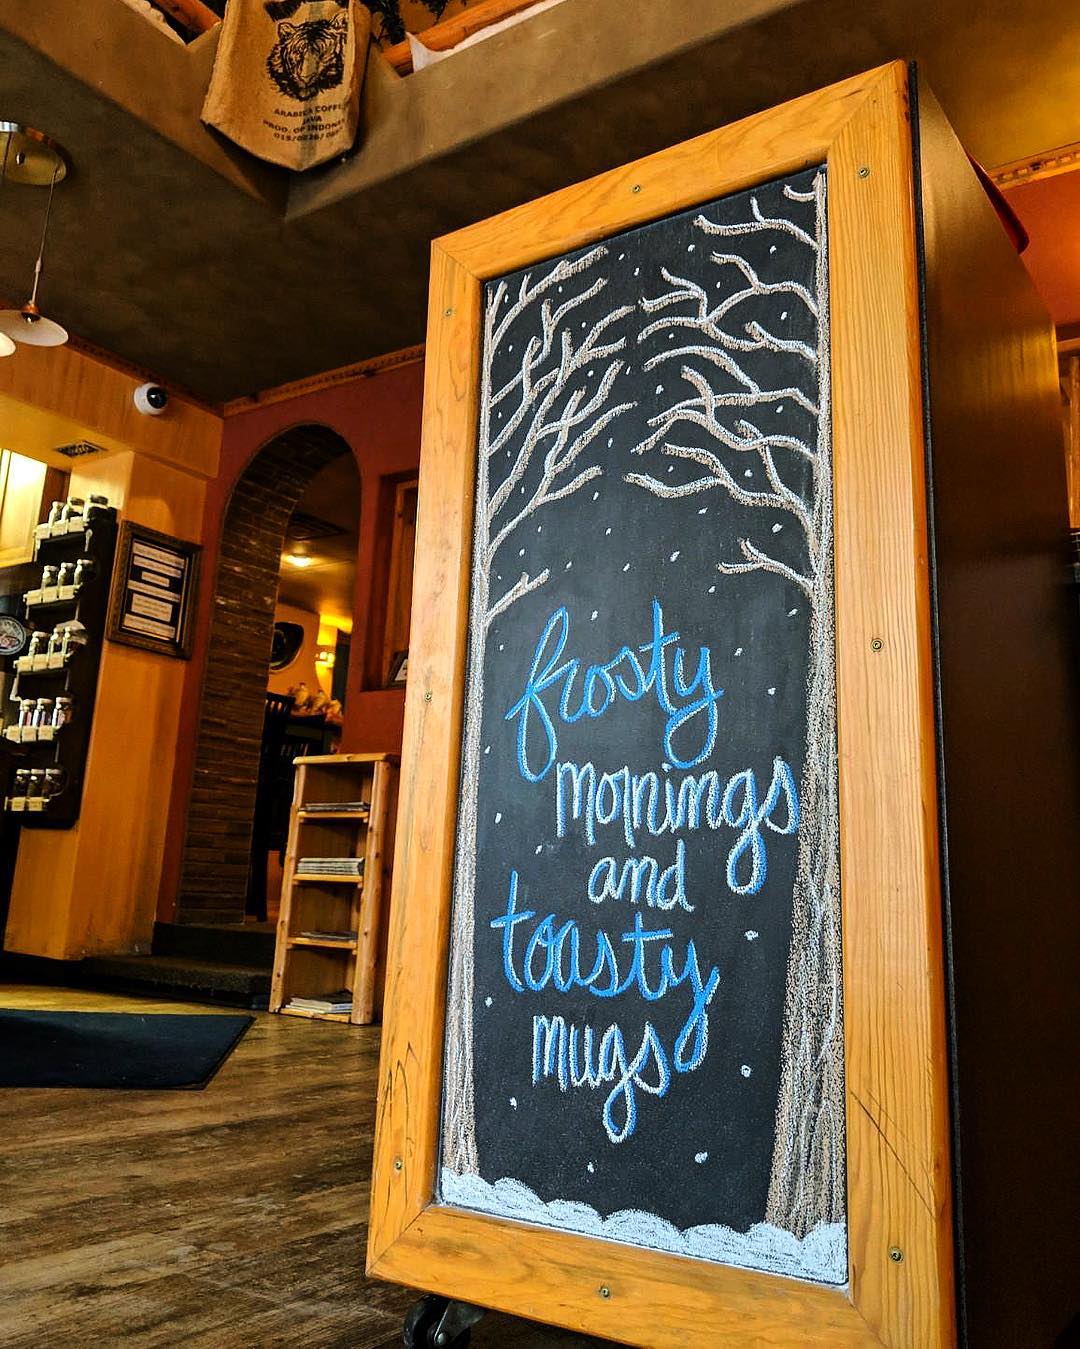 ARABICA COFFEE
JAVA
PROD. OF INDONES
frosty
mornings
and
toasty
mugs